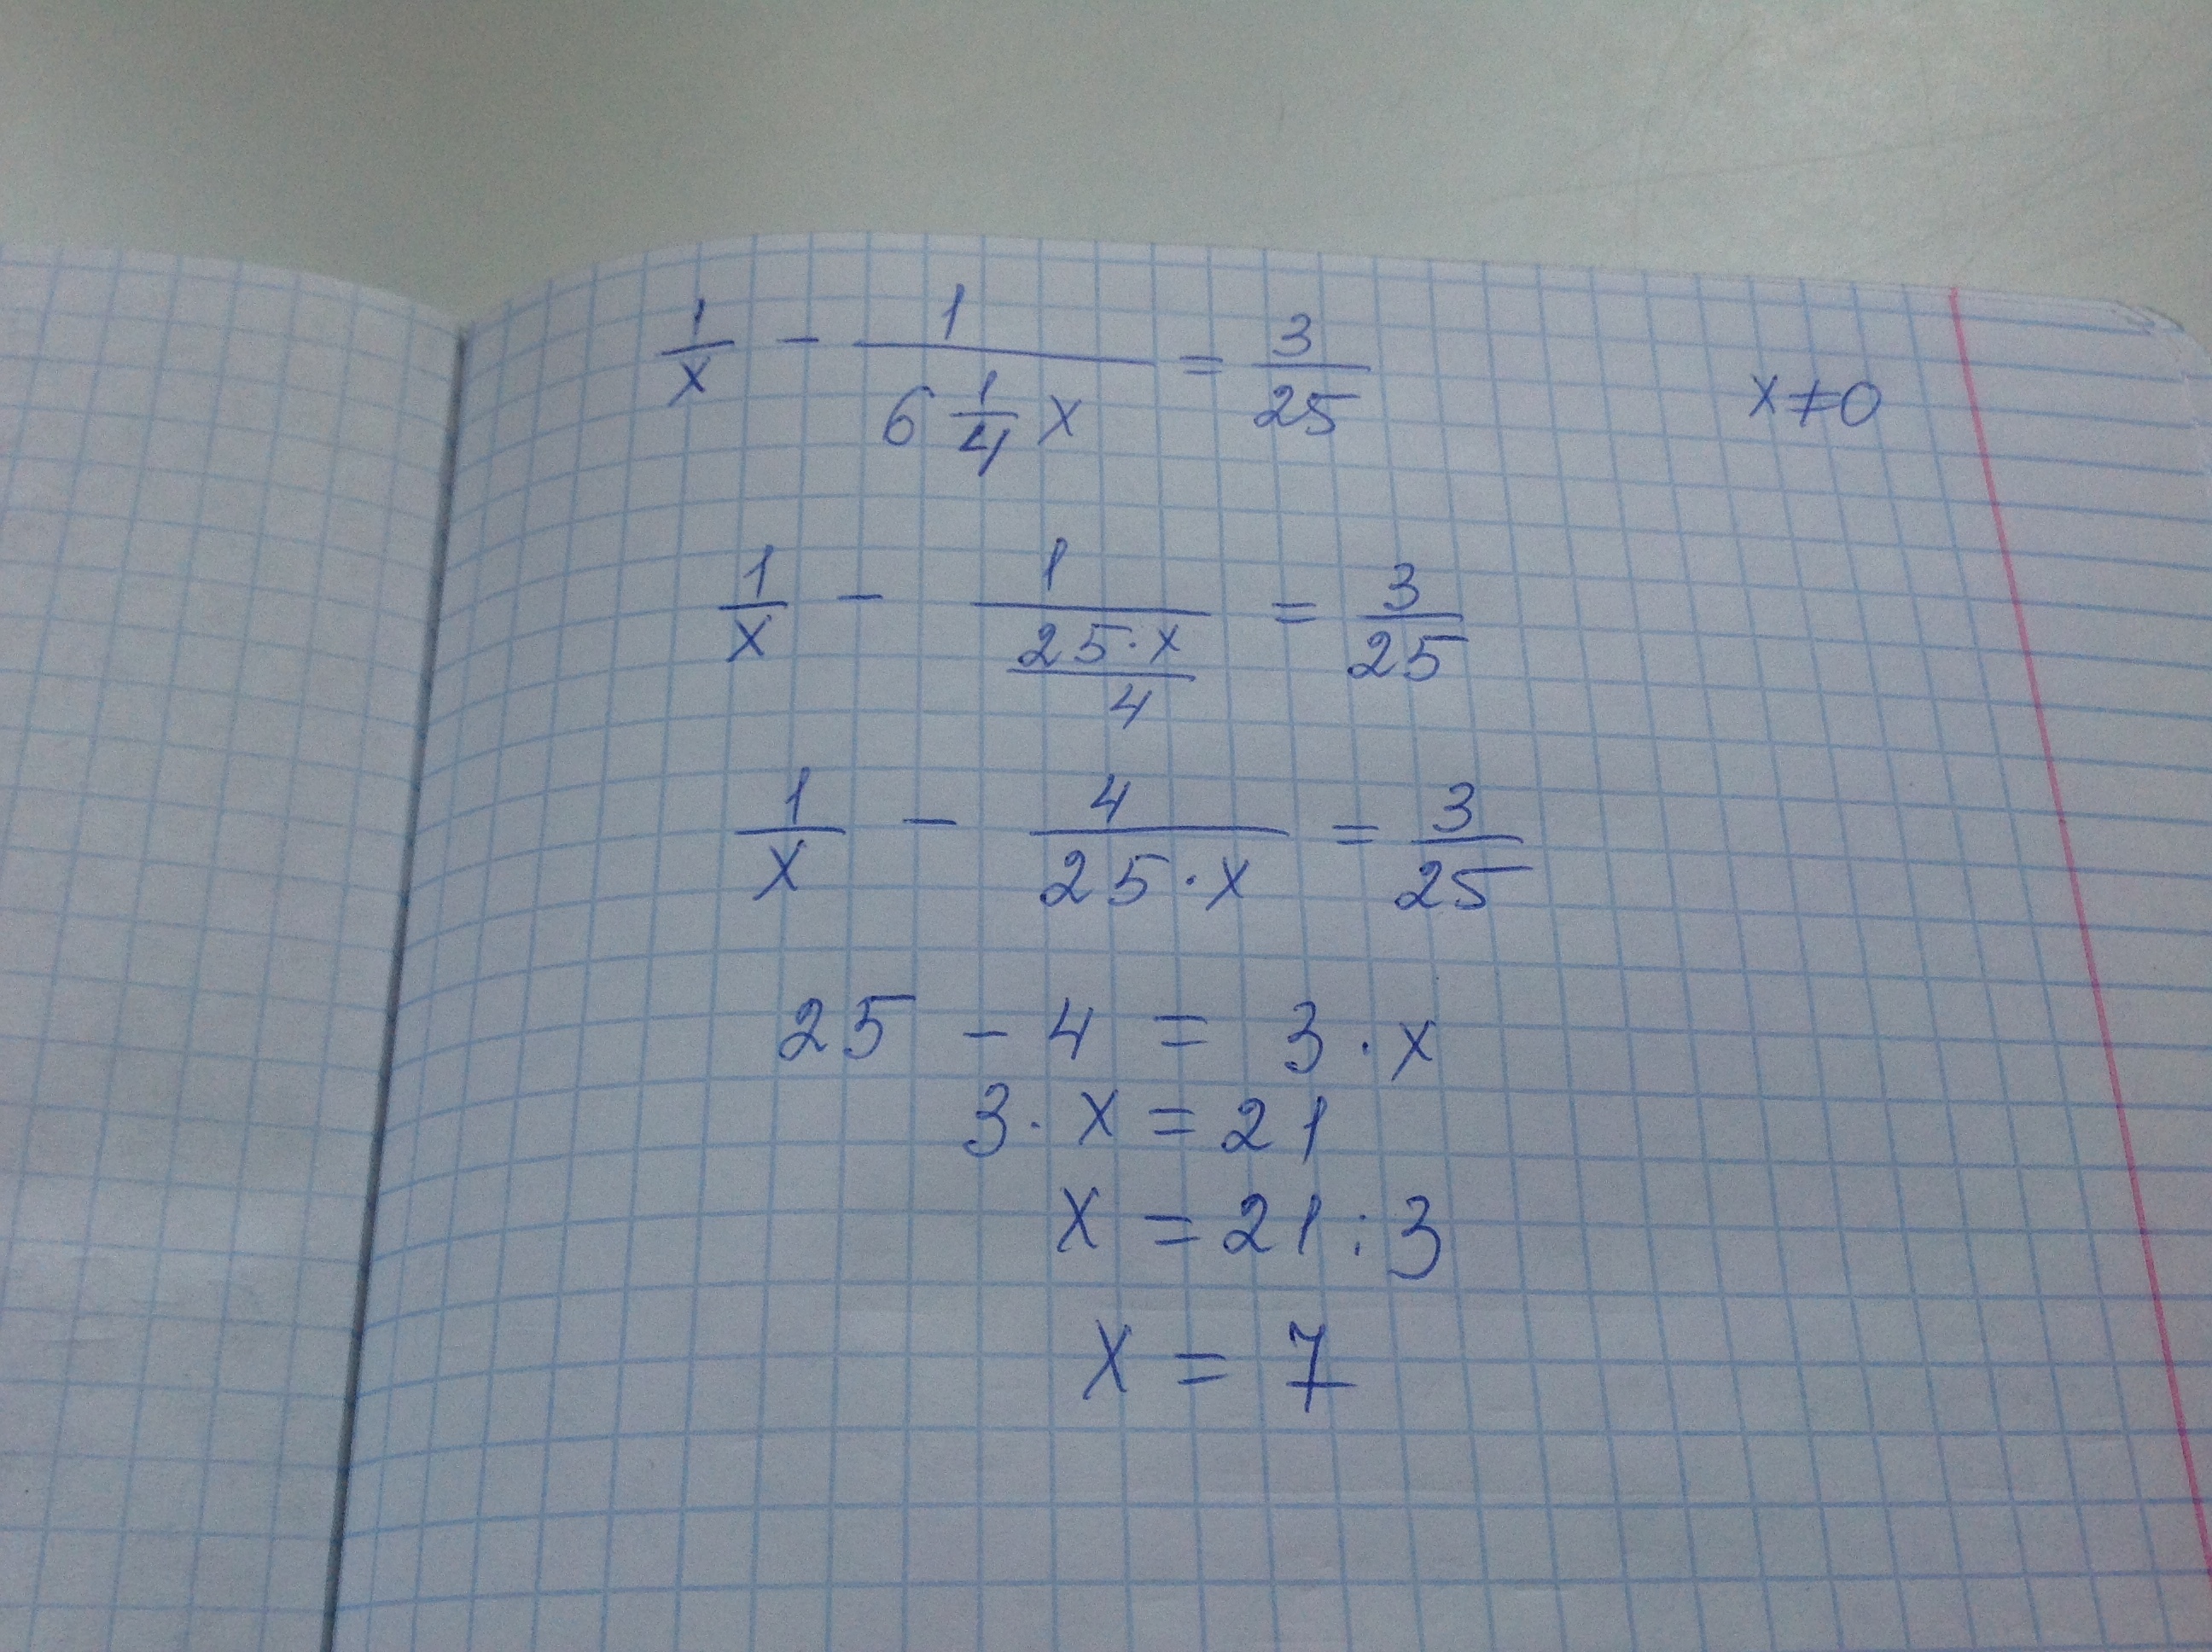 1/x - 1/(6 1/4 x) = 3/25 x ≠ 0
1/x - 1/(25·x/4) = 3/25
1/x - 4/(25·x) = 3/25
25 - 4 = 3·x
3·x = 21
x = 21 : 3
x = 7